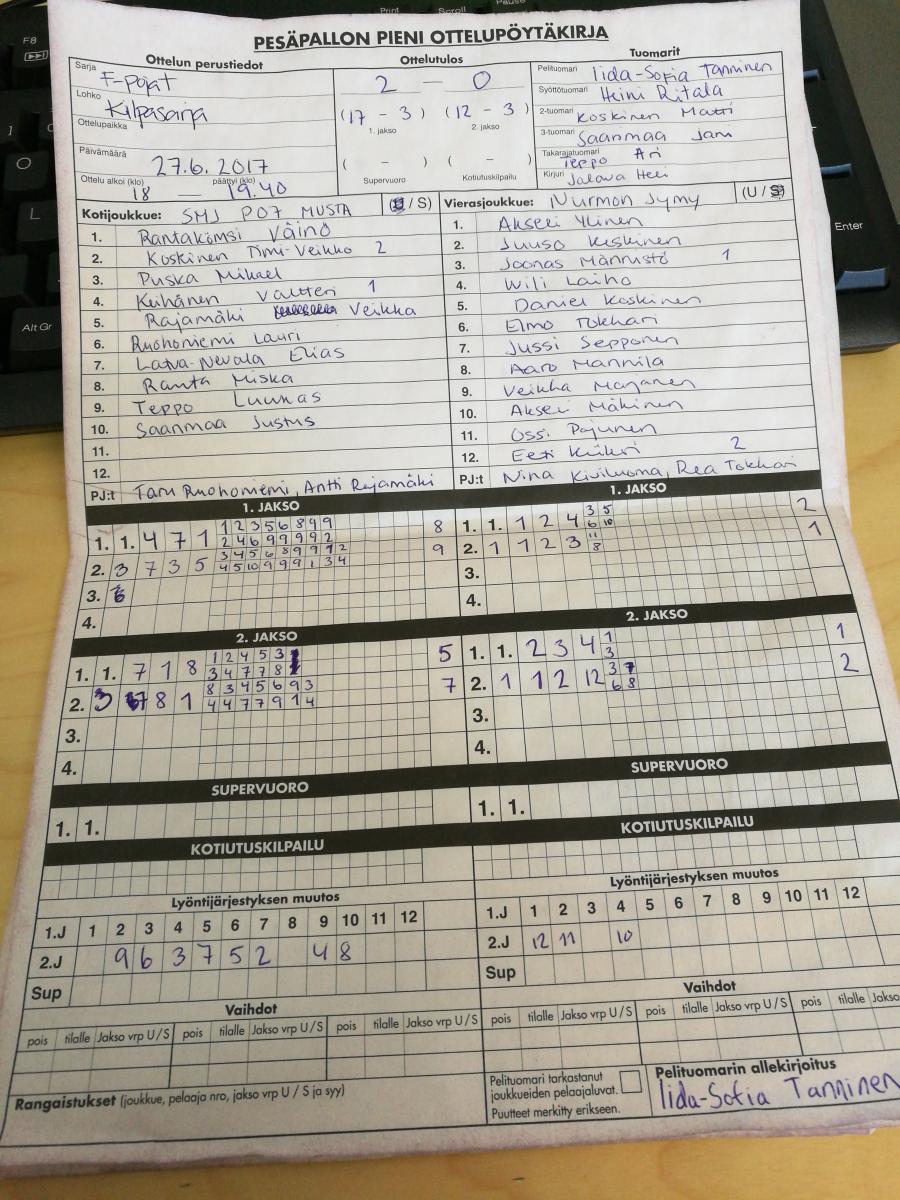 F8
Print
Scroll
Pause
PESÄPALLON PIENI OTTELUPÖYTÄKIRJA
Ottelun perustiedot
Sarja F-pojat
Lohko Kilpasarja
Ottelupaikka
Päivämäärä 27.6. 2017
Ottelu alkoi (klo) 18 – päättyi (klo) 19.40
Ottelutulos
2 – 0
(17 - 3) (12 - 3)
1. jakso 2. jakso
( - ) ( - )
Supervuoro Kotiutuskilpailu
Tuomarit
Pelituomari Iida-Sofia Tanninen
Syöttötuomari Heini Ritala
2-tuomari Koskinen Matti
3-tuomari Saarimaa Jani
Takarajatuomari Teppo Ari
Kirjuri Jalava Heli
Kotijoukkue: SMJ P07 MUSTA ( / S)
1. Rantakömsi Väinö
2. Koskinen Timi-Veikko 2
3. Puska Mikael
4. Keihänen Valtteri 1
5. Rajamäki Veikka
6. Ruohoniemi Lauri
7. Latva-Nevala Elias
8. Ranta Miska
9. Teppo Luukas
10. Saarimaa Justus
11.
12.
PJ:t Taru Ruohoniemi, Antti Rajamäki
Vierasjoukkue: Nurmon Jymy (U / )
1. Akseli Ylinen
2. Juuso Keskinen
3. Joonas Männistö 1
4. Wili Laiho
5. Daniel Koskinen
6. Elmo Tokkari
7. Jussi Sepponen
8. Aaro Mannila
9. Veikka Marjanen
10. Akseli Mäkinen
11. Ossi Pajunen
12. Eeti 2
PJ:t Nina Kiviluoma, Rea Tokkari
1. JAKSO
1. 1. 4 7 1 1 2 3 5 6 8 4 9 8
2 4 6 9 9 9 9 2
2. 3 7 3 5 3 4 5 6 8 9 9 1 2 9
4 5 10 9 9 9 1 3 4
3. 6
4.
1. JAKSO
1. 1. 1 2 4 3 5 2
6 10
2. 1 1 2 3 11 1
8
3.
4.
2. JAKSO
1. 1. 7 1 8 1 2 4 5 3 1 5
3 4 7 7 8
2. 3 7 8 1 8 3 4 5 6 9 3 7
4 4 7 7 9 1 4
3.
4.
2. JAKSO
1. 1. 2 3 4 1 1
3
2. 1 1 2 12 3 7 2
6 8
3.
4.
SUPERVUORO
1. 1.
SUPERVUORO
1. 1.
KOTIUTUSKILPAILU
KOTIUTUSKILPAILU
Lyöntijärjestyksen muutos
1.J 1 2 3 4 5 6 7 8 9 10 11 12
2.J 9 6 3 7 5 2 4 8
Sup
Lyöntijärjestyksen muutos
1.J 1 2 3 4 5 6 7 8 9 10 11 12
2.J 12 11 10
Sup
Vaihdot
pois tilalle Jakso vrp U / S pois tilalle Jakso vrp U / S pois tilalle Jakso vrp U / S
Vaihdot
pois tilalle Jakso vrp U / S pois tilalle Jakso vrp U / S pois tilalle Jakso
Rangaistukset (joukkue, pelaaja nro, jakso vrp U / S ja syy)
Pelituomari tarkastanut
joukkueiden pelaajaluvat.
Puutteet merkitty erikseen.
Pelituomarin allekirjoitus
Iida-Sofia Tanninen
O
L
Alt Gr
Enter